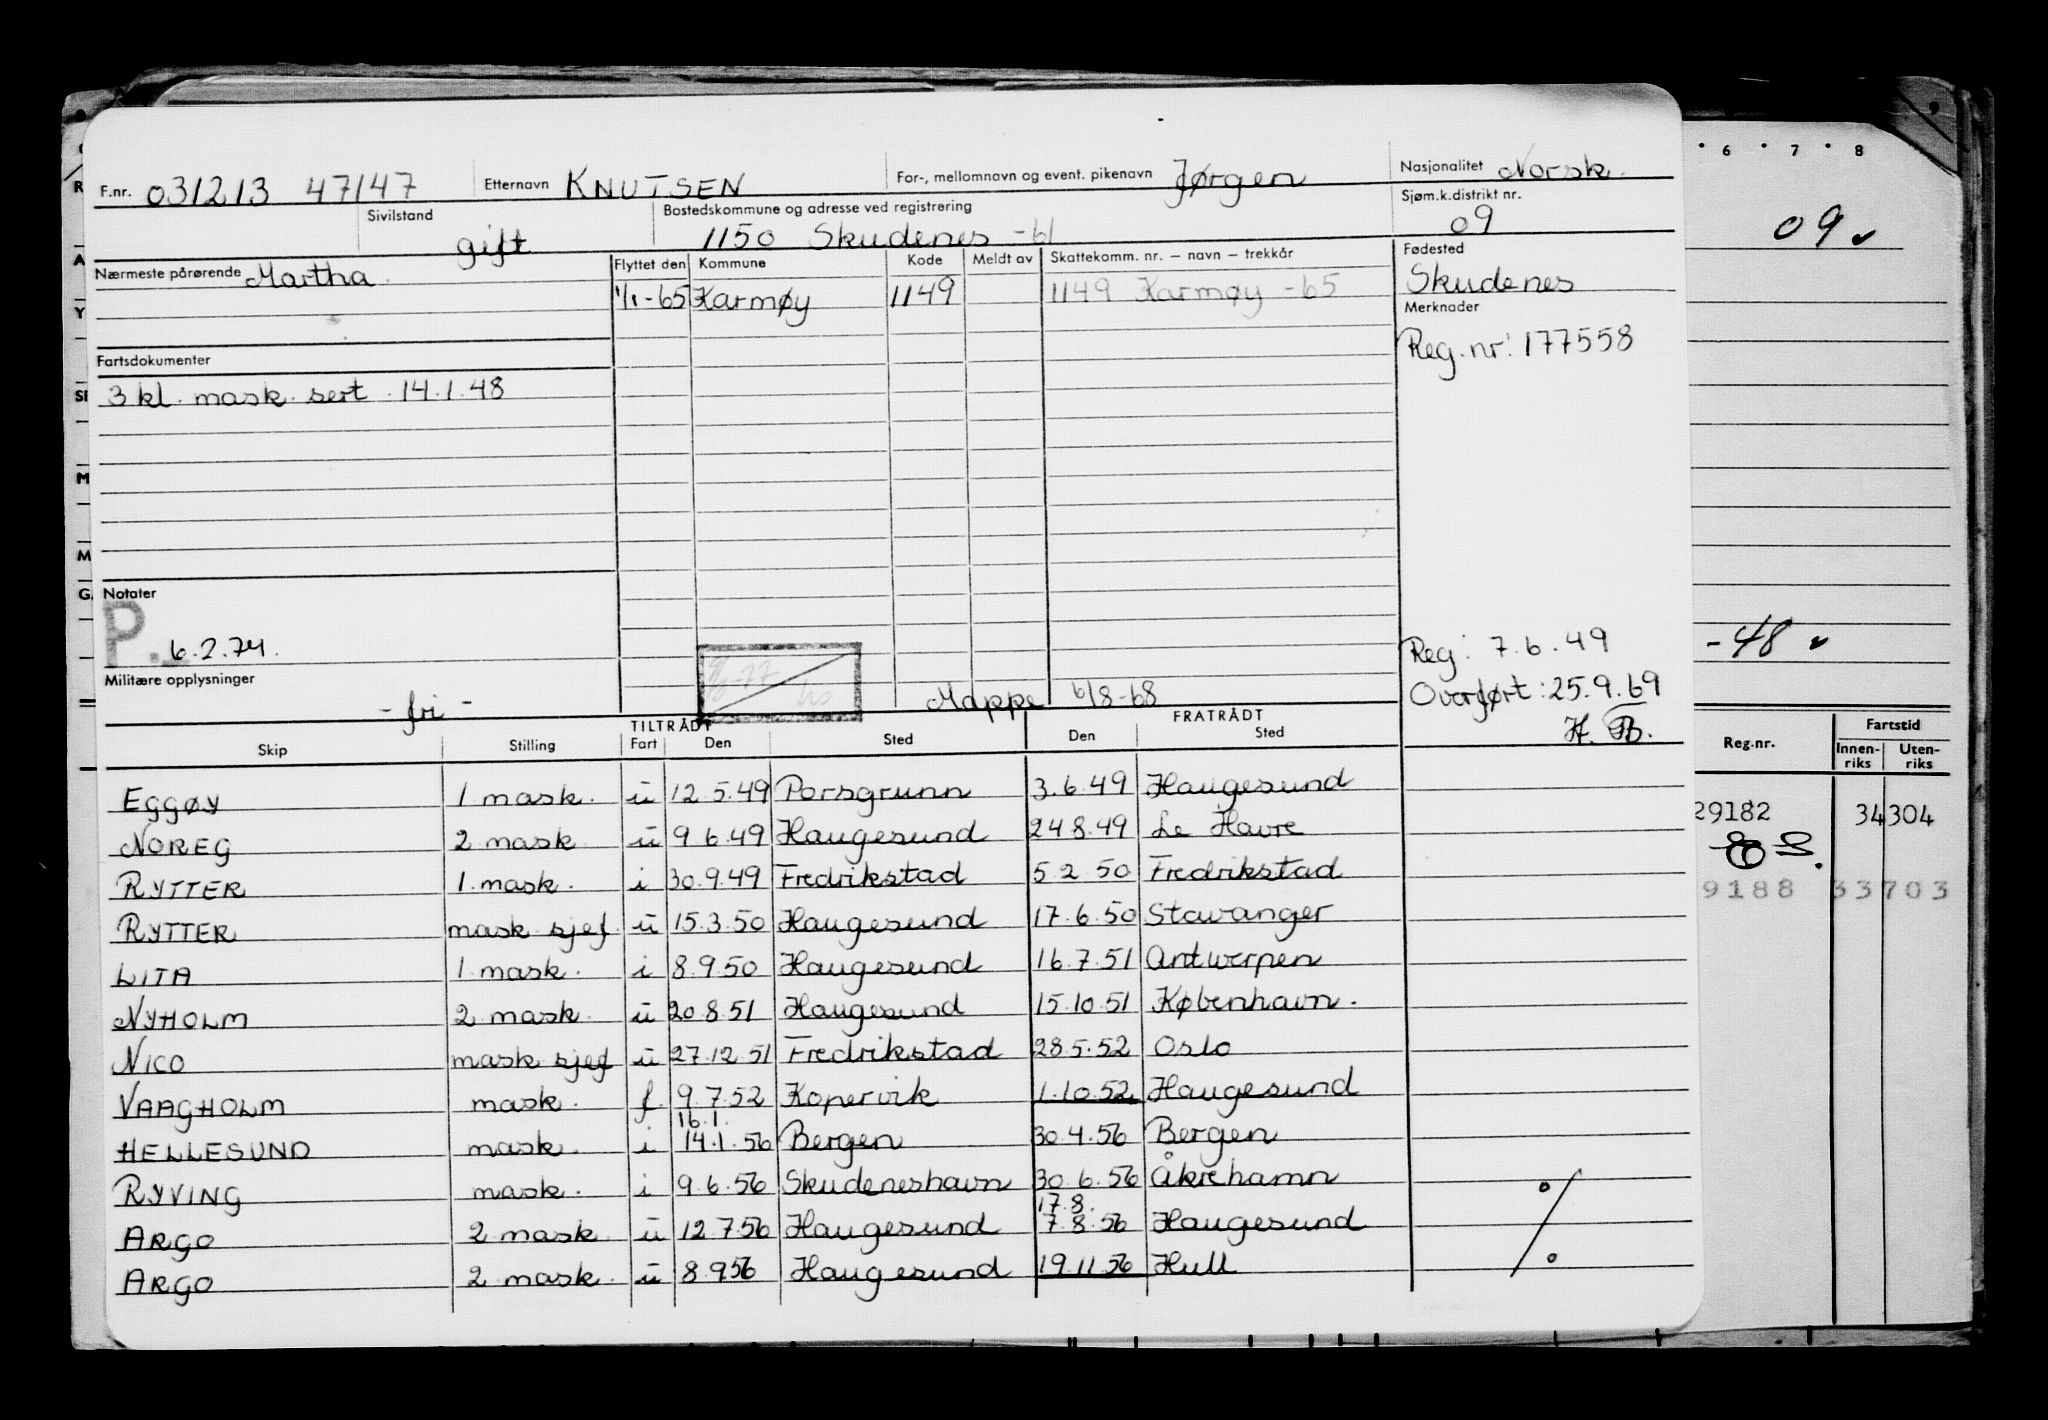 F.nr. 031213 47147 Etternavn KNUTSEN For-, mellomnavn og event. pikenavn Jørgen Nasjonalitet Norsk.
Sivilstand gift Bostedskommune og adresse ved registrering 1150 Skudenes -61 Sjøm.k.distrikt nr. 09
Nærmeste pårørende Martha. Flyttet den Kommune Kode Meldt av Skattekomm. nr. – navn – trekkår Fødested
1/1-65 Karmøy 1149 1149 Karmøy -65 Skudenes
Merknader
Reg.nr: 177558
Fartsdokumenter
3 kl. mask. sert. 14.1.48
Notater
P. 6.2.74.
Militære opplysninger
- fri -
Mappe 6/8-68
Reg: 7.6.49
Overført: 25.9.69
H. B.
TILTRÅDT FRATRÅDT
Skip Stilling Fart Den Sted Den Sted
EGGØY 1 mask. u 12.5.49 Porsgrunn 3.6.49 Haugesund
NOREG 2 mask u 9.6.49 Haugesund 24.8.49 Le Havre
RYTTER 1. mask. i 30.9.49 Fredrikstad 5.2.50 Fredrikstad
RYTTER mask sjef. u 15.3.50 Haugesund 17.6.50 Stavanger
LITA 1. mask. i 8.9.50 Haugesund 16.7.51 Antwerpen
NYHOLM 2 mask. u 20.8.51 Haugesund 15.10.51 København.
NICO mask sjef u 27.12.51 Fredrikstad 28.5.52 Oslo
VAAGHOLM mask. f 9.7.52 Kopervik 1.10.52 Haugesund
16.1.
HELLESUND mask. i 14.1.56 Bergen 30.4.56 Bergen
RYVING mask. i 9.6.56 Skudeneshavn 30.6.56 Åkrehamn
17.8.
ARGO 2 mask u 12.7.56 Haugesund 7.8.56 Haugesund
ARGO 2 mask. u 8.9.56 Haugesund 19.11.56 Hull
6 7 8
09
-48
Reg.nr. Fartstid
Innen-riks Uten-riks
29182 34 304
9188 33703
R
A
Y
SI
M
M
G